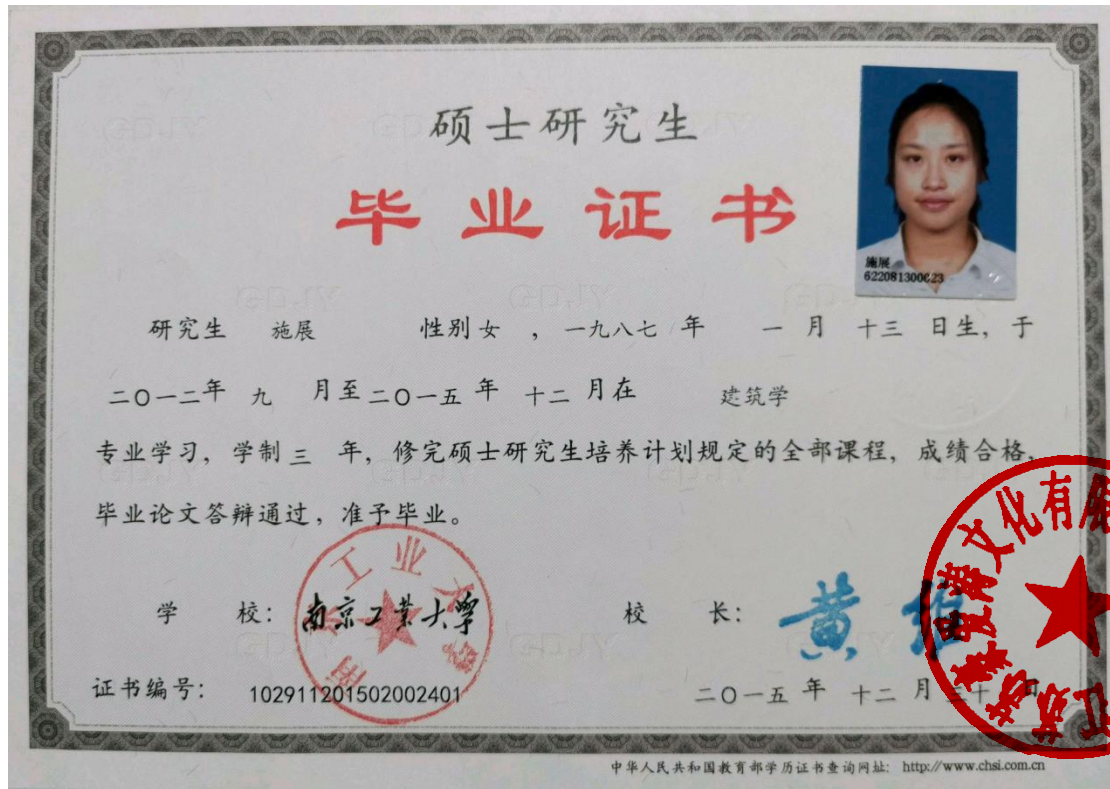 硕士研究生
毕业证书
施展
622081300023
研究生 施展 性别 女 , 一九八七 年 一 月 十三 日生, 于
二〇一二年 九 月至二〇一五 年 十二 月在 建筑学
专业学习, 学制 三 年, 修完硕士研究生培养计划规定的全部课程, 成绩合格,
毕业论文答辩通过, 准予毕业。
学 校: 南京工业大学
南京工业大学
校 长: 黄维
证书编号: 102911201502002401
二〇一五 年 十二 月 三十 日
文化有
江苏
中华人民共和国教育部学历证书查询网址: http://www.chsi.com.cn